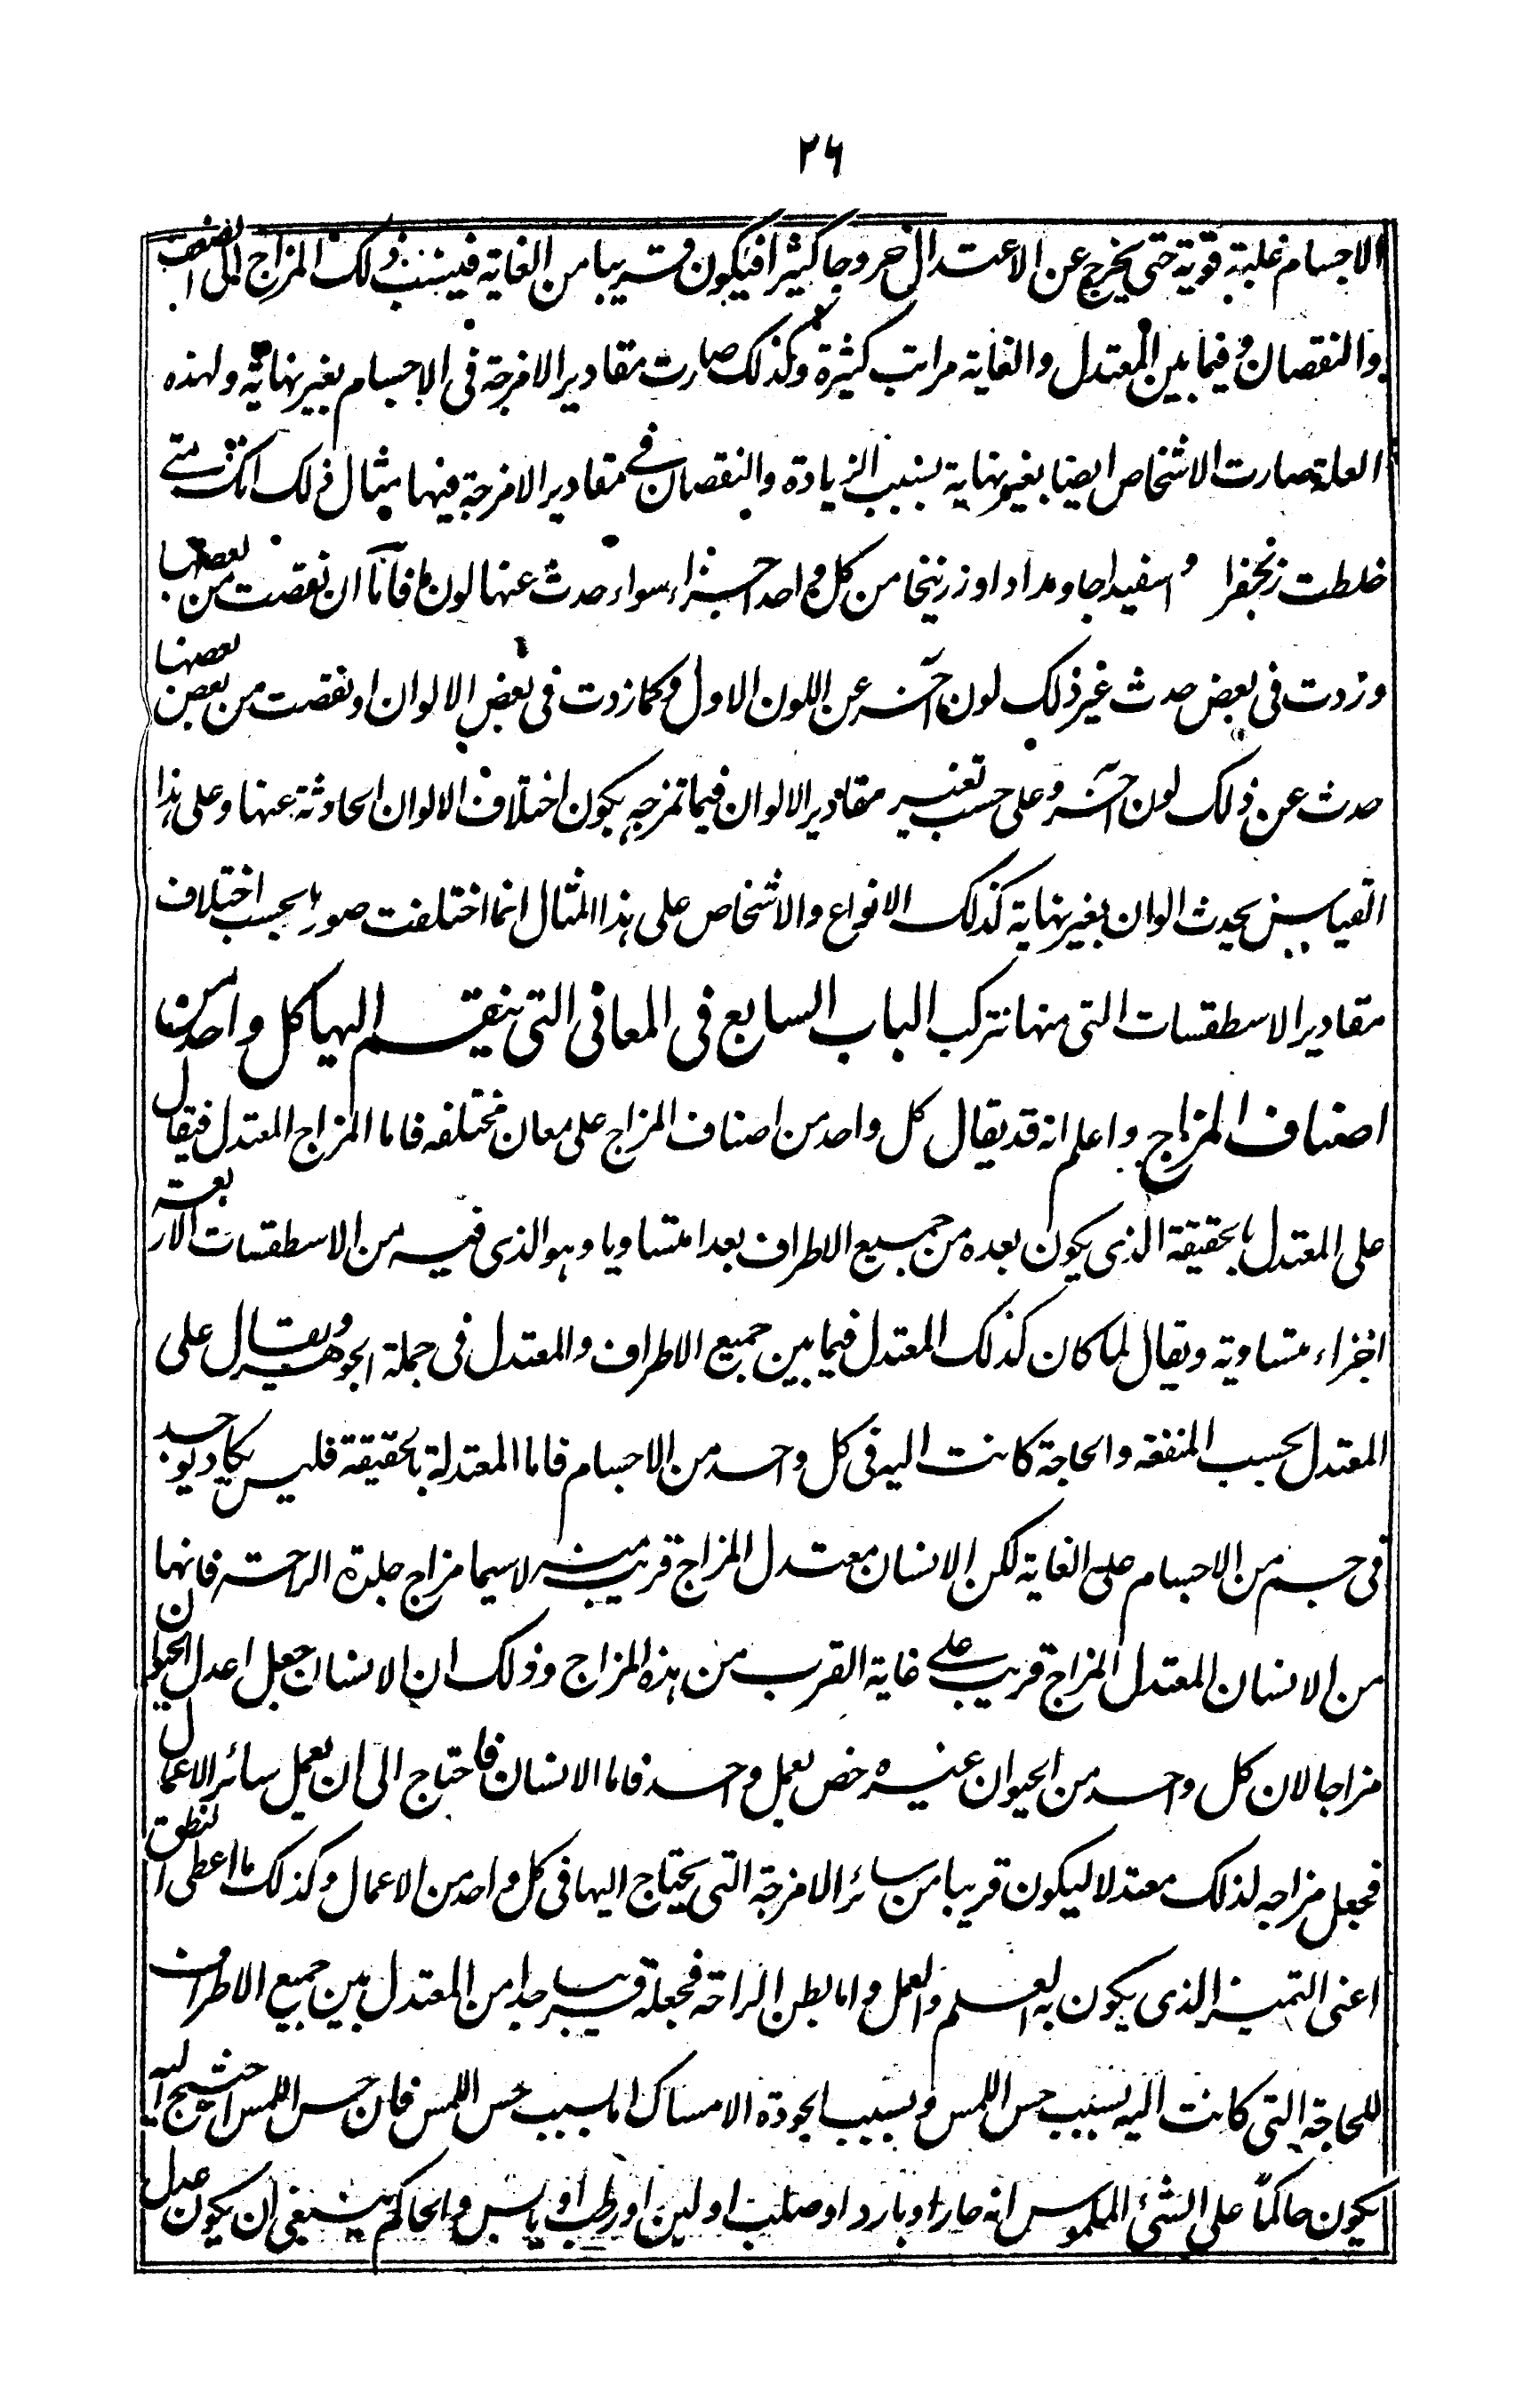 ٢٦
الاجسام غلبة قوية حتى يخرج عن الاعتدال خروجا كثيرا فيكون قريبا من الغاية فينسب ذلك المزاج الى الضعف
والنقصان وفيما بين المعتدل والغاية مراتب كثيرة وكذلك صارت مقادير الامزجة فى الاجسام بغير نهاية ولهذه
العلة صارت الاشخاص ايضا بغير نهاية بسبب الزيادة والنقصان فى مقادير الامزجة فيها مثال ذلك انك متى
خلطت زنجفرا و اسفيداجا ومدادا وزرنيخا من كل واحد اجزاء سواء حدث عنها لون ما فاما ان نقصت من بعضها
وزدت فى بعض حدث غير ذلك لون آخر عن اللون الاول وكما زدت فى بعض الالوان او نقصت من بعض بعضها
حدث عن ذلك لون آخر وعلى حسب تغير مقادير الالوان فيما تمزجه يكون اختلاف الالوان الحادثة عنها وعلى هذا
القياس يحدث الوان بغير نهاية كذلك الانواع والاشخاص على هذا المثال انما اختلفت صورها بحسب اختلاف
مقادير الاسطقسات التى منها تتركب الباب السابع فى المعانى التى ينقسم اليها كل واحد من
اصناف المزاج واعلم انه قد يقال كل واحد من اصناف المزاج على معان مختلفه فاما المزاج المعتدل فيقال
على المعتدل بالحقيقة الذى يكون بعده من جميع الاطراف بعدا متساويا وهو الذى فيه من الاسطقسات الاربعة
اجزاء متساوية ويقال لما كان كذلك المعتدل فيما بين جميع الاطراف والمعتدل فى جملة الجوهر ويقال على
المعتدل بحسب المنفعه والحاجة كانت اليه فى كل واحد من الاجسام فاما المعتدلة بالحقيقة فليس يكاد يوجد
فى جسم من الاجسام على الغاية لكن الانسان معتدل المزاج قريب منه لاسيما مزاج جلدة الراحة فانها
من الانسان المعتدل المزاج قريب على غاية القرب من هذه المزاج وذلك ان الانسان جعل اعدل الحيوان
مزاجا لان كل واحد من الحيوان غيره خص بعمل واحد فاما الانسان فاحتاج الى ان يعمل سائر الاعمال
فجعل مزاجه لذلك معتدلا ليكون قريبا من سائر الامزجة التى يحتاج اليها فى كل واحد من الاعمال وكذلك ما اعطى النطق
اعنى التميز الذى يكون به العلم والعمل واما بطن الراحة فجعله قريبا جدا من المعتدل بين جميع الاطراف
للحاجة التى كانت اليه بسبب حس اللمس وبسبب لجودة الامساك اما بسبب حس اللمس فان حس اللمس احتيج اليه
ليكون حاكمًا على الشئ الملموس انه حار او بارد او صلب او لين او رطب او يابس والحاكم ينبغى ان يكون عدل